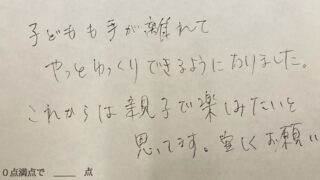 子どもも手が離れて
やっとゆっくりできるようになりました。
これからは親子で楽しみたいと
思ってます。宜しくお願い
0点満点で ＿＿ 点